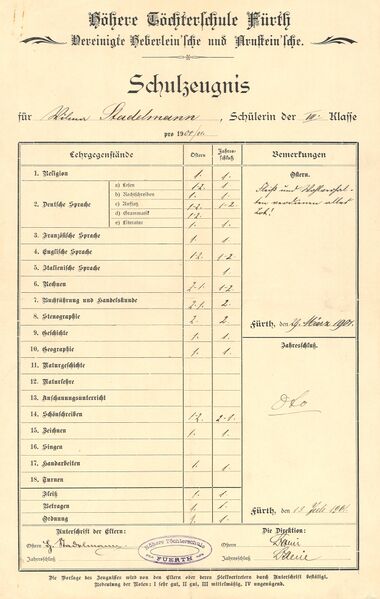 Höhere Töchterschule Fürth
Vereinigte Heberlein'sche und Arnstein'sche.
Schulzeugnis
für Wilma Stadelmann, Schülerin der IV. Klasse
pro 1900/01
Lehrgegenstände Ostern Jahresschluß Bemerkungen
1. Religion 1. 1.
2. Deutsche Sprache
a) Lesen 1-2. 1.
b) Rechtschreiben 1. 1.
c) Aufsatz 1-2. 1-2
d) Grammatik 1-2.
e) Literatur 1. 1.
3. Französische Sprache 1. 1.
4. Englische Sprache 1-2. 1-2.
5. Italienische Sprache 1.
6. Rechnen 2-1. 1-2
7. Buchführung und Handelskunde 2-1. 2.
8. Stenographie 2. 2.
9. Geschichte 1. 1.
10. Geographie 1. 1.
11. Naturgeschichte
12. Naturlehre
13. Anschauungsunterricht
14. Schönschreiben 1-2. 2-1.
15. Zeichnen 1. 1.
16. Singen
17. Handarbeiten 1. 1.
18. Turnen
Fleiß 1. 1.
Betragen 1. 1.
Ordnung 1. 1.
Ostern.
Fleiß und Wohlverhalten verdienen alles
Lob!
Fürth, den 29. März 1901.
Jahresschluß.
dto
Fürth, den 15. Juli 1901.
Unterschrift der Eltern:
Ostern Stadelmann
Jahresschluß
Höhere Töchterschule
FUERTH
Die Direktion:
Ostern
Jahresschluß
Die Vorlage des Zeugnisses wird von den Eltern oder deren Stellvertretern durch Unterschrift bestätigt.
Bedeutung der Noten: I sehr gut, II gut, III mittelmäßig, IV ungenügend.